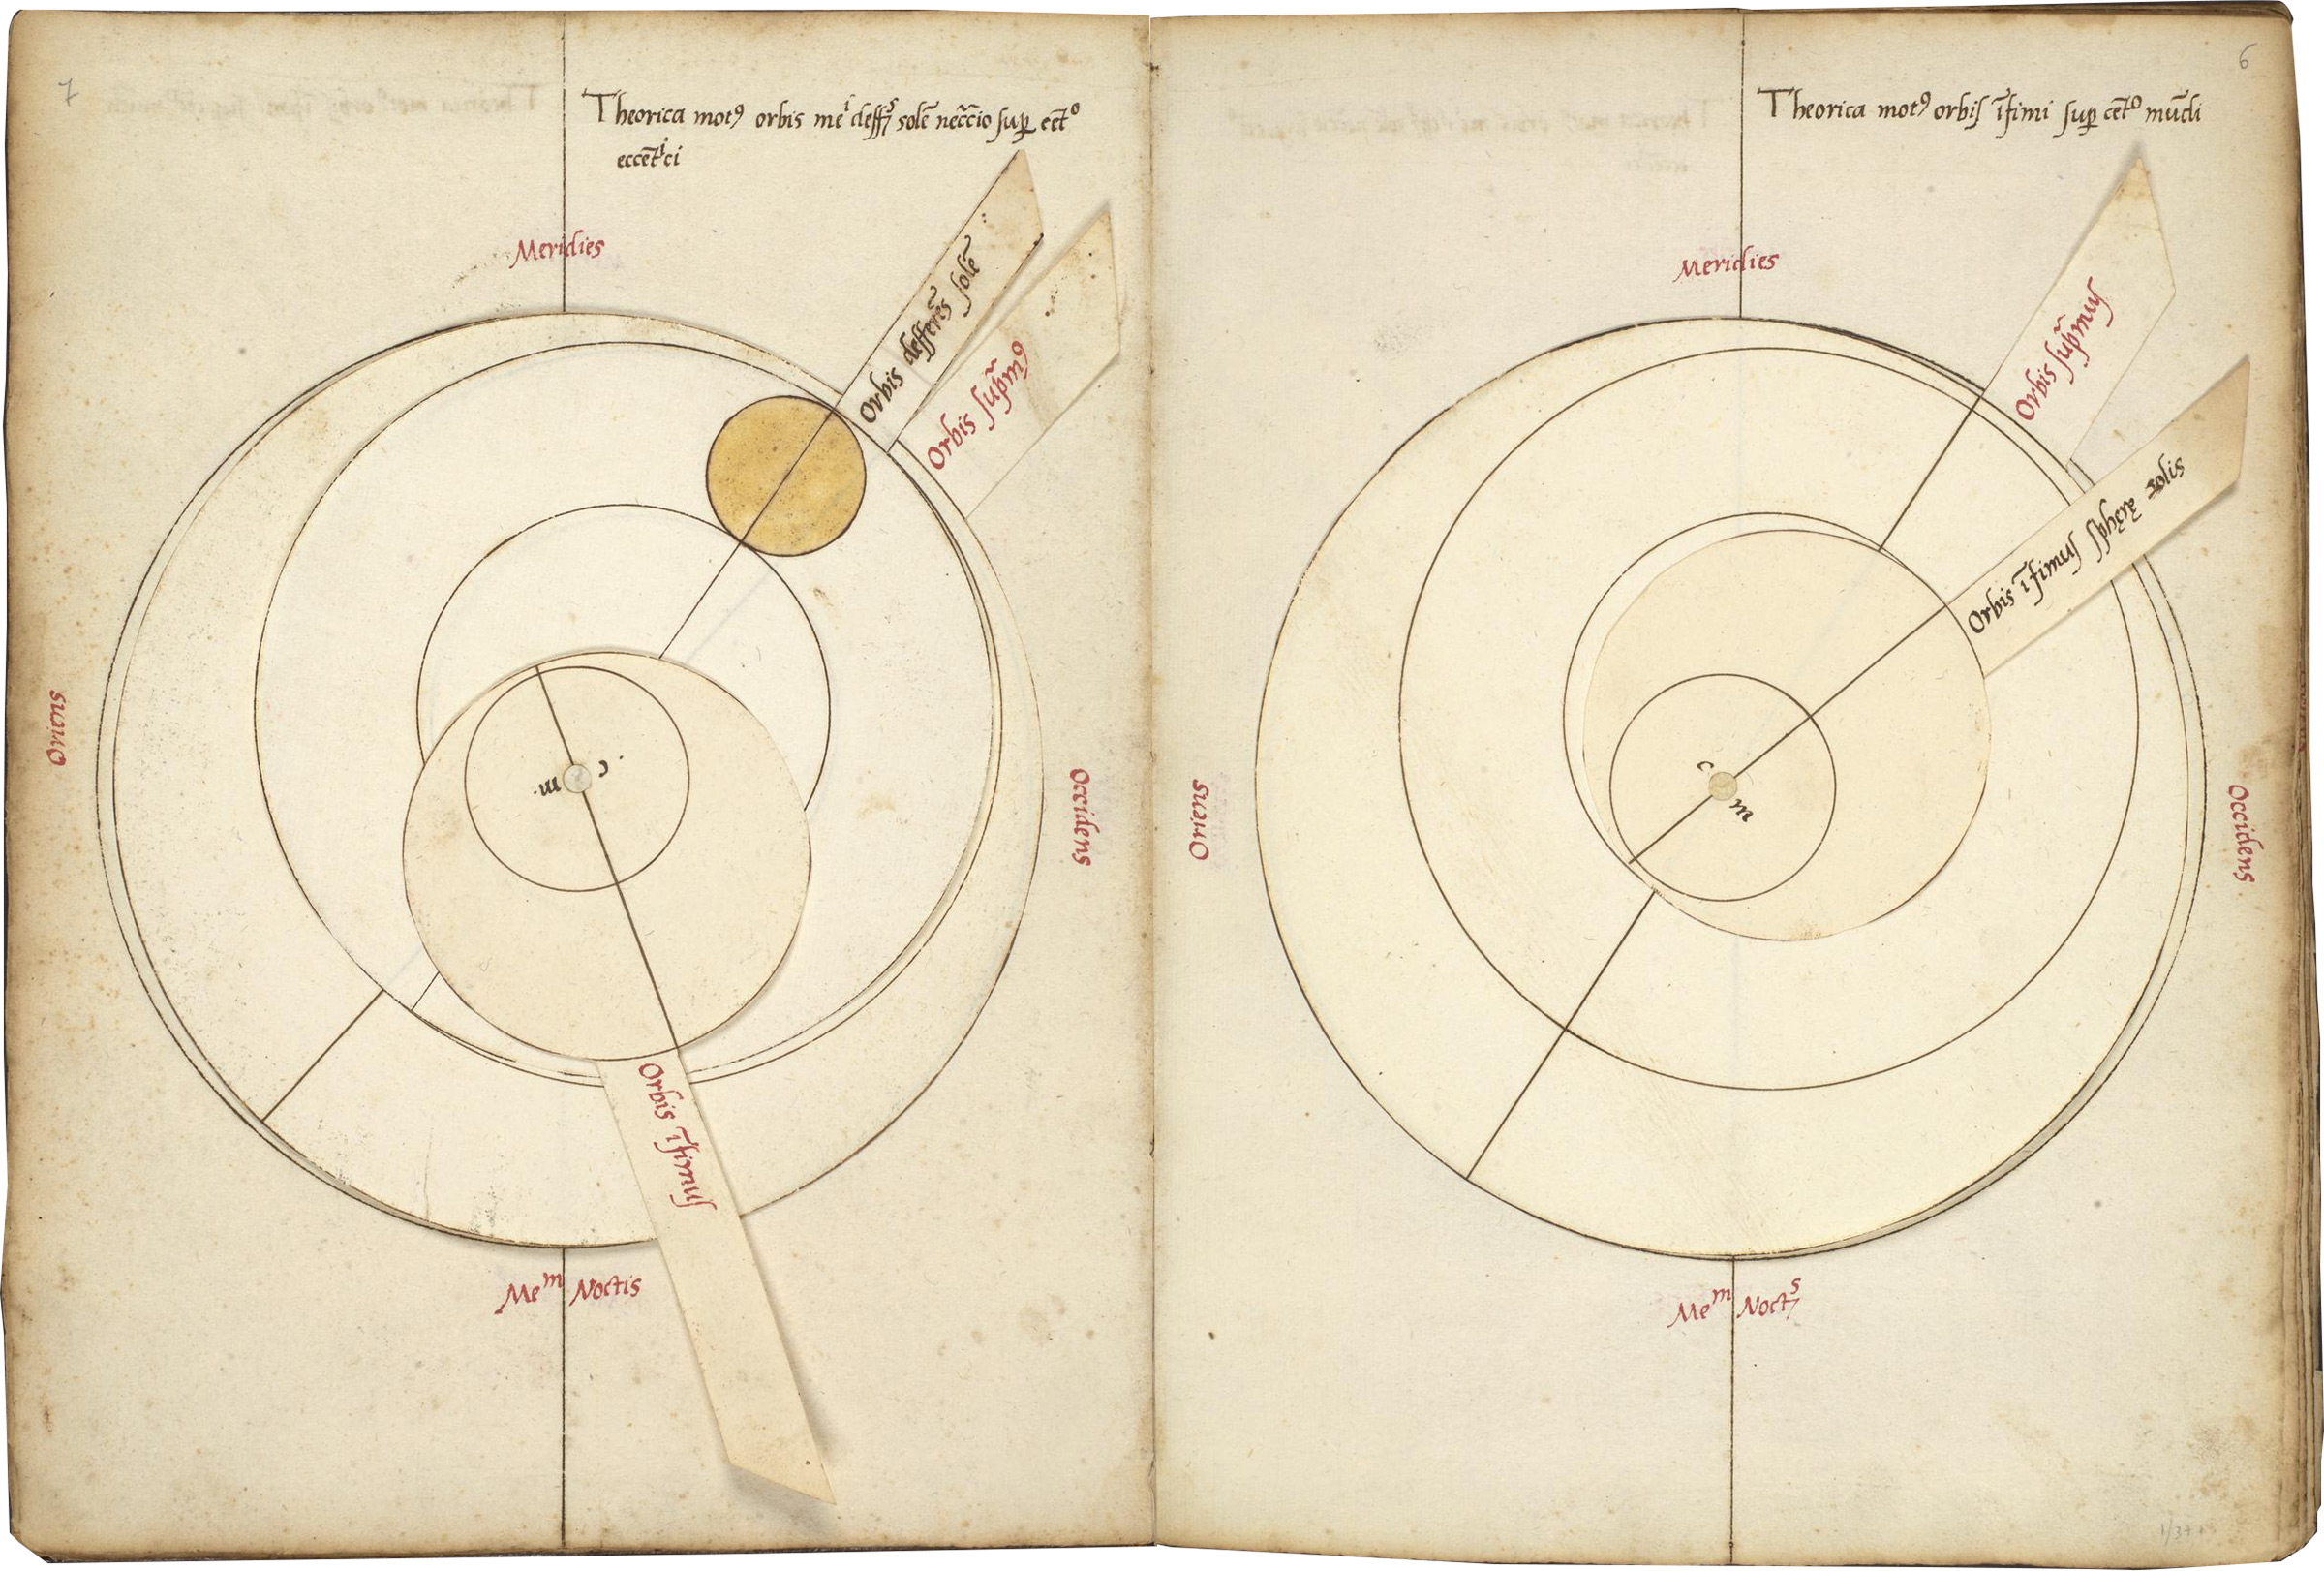 7
Theorica motꝰ orbis meⁱ deff₇ˢ solē necc̄io suꝑ cet°
eccētⁱci
Meridies
Orbis defferēs solē
Orbis sup̄mꝰ
Oriens
.m
c.
Occidens
Orbis īfimus
Meᵐ Noctis
6
Theorica motꝰ orbis īfimi suꝑ cēt° mūdi
Meridies
Orbis sup̄mus
Orbis īfimus sphęrę solis
Oriens
c
m
Occidens
Meᵐ Noct₇ˢ